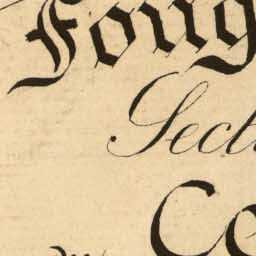 Foug
Sect
Ce